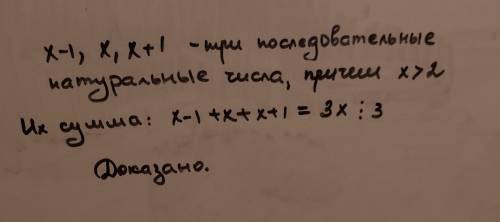 x-1, x, x+1 - три последовательные
натуральные числа, причем x>2
Их сумма: x-1+x+x+1 = 3x ⋮ 3
Доказано.